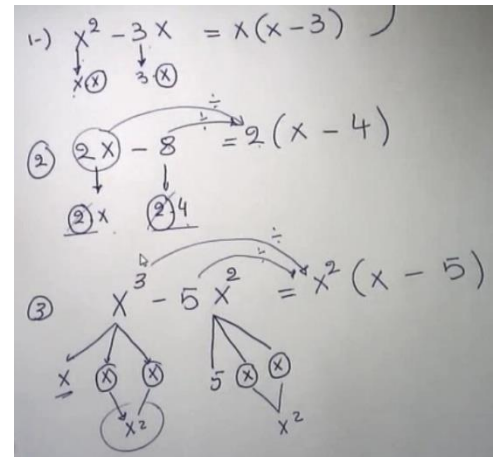 1-) x² - 3x = x(x-3)
x.x 3.x
÷
÷
② 2x - 8 = 2(x - 4)
2 x 2.4
÷
÷
③ x³ - 5x² = x²(x - 5)
x x x 5 x x
x² x²